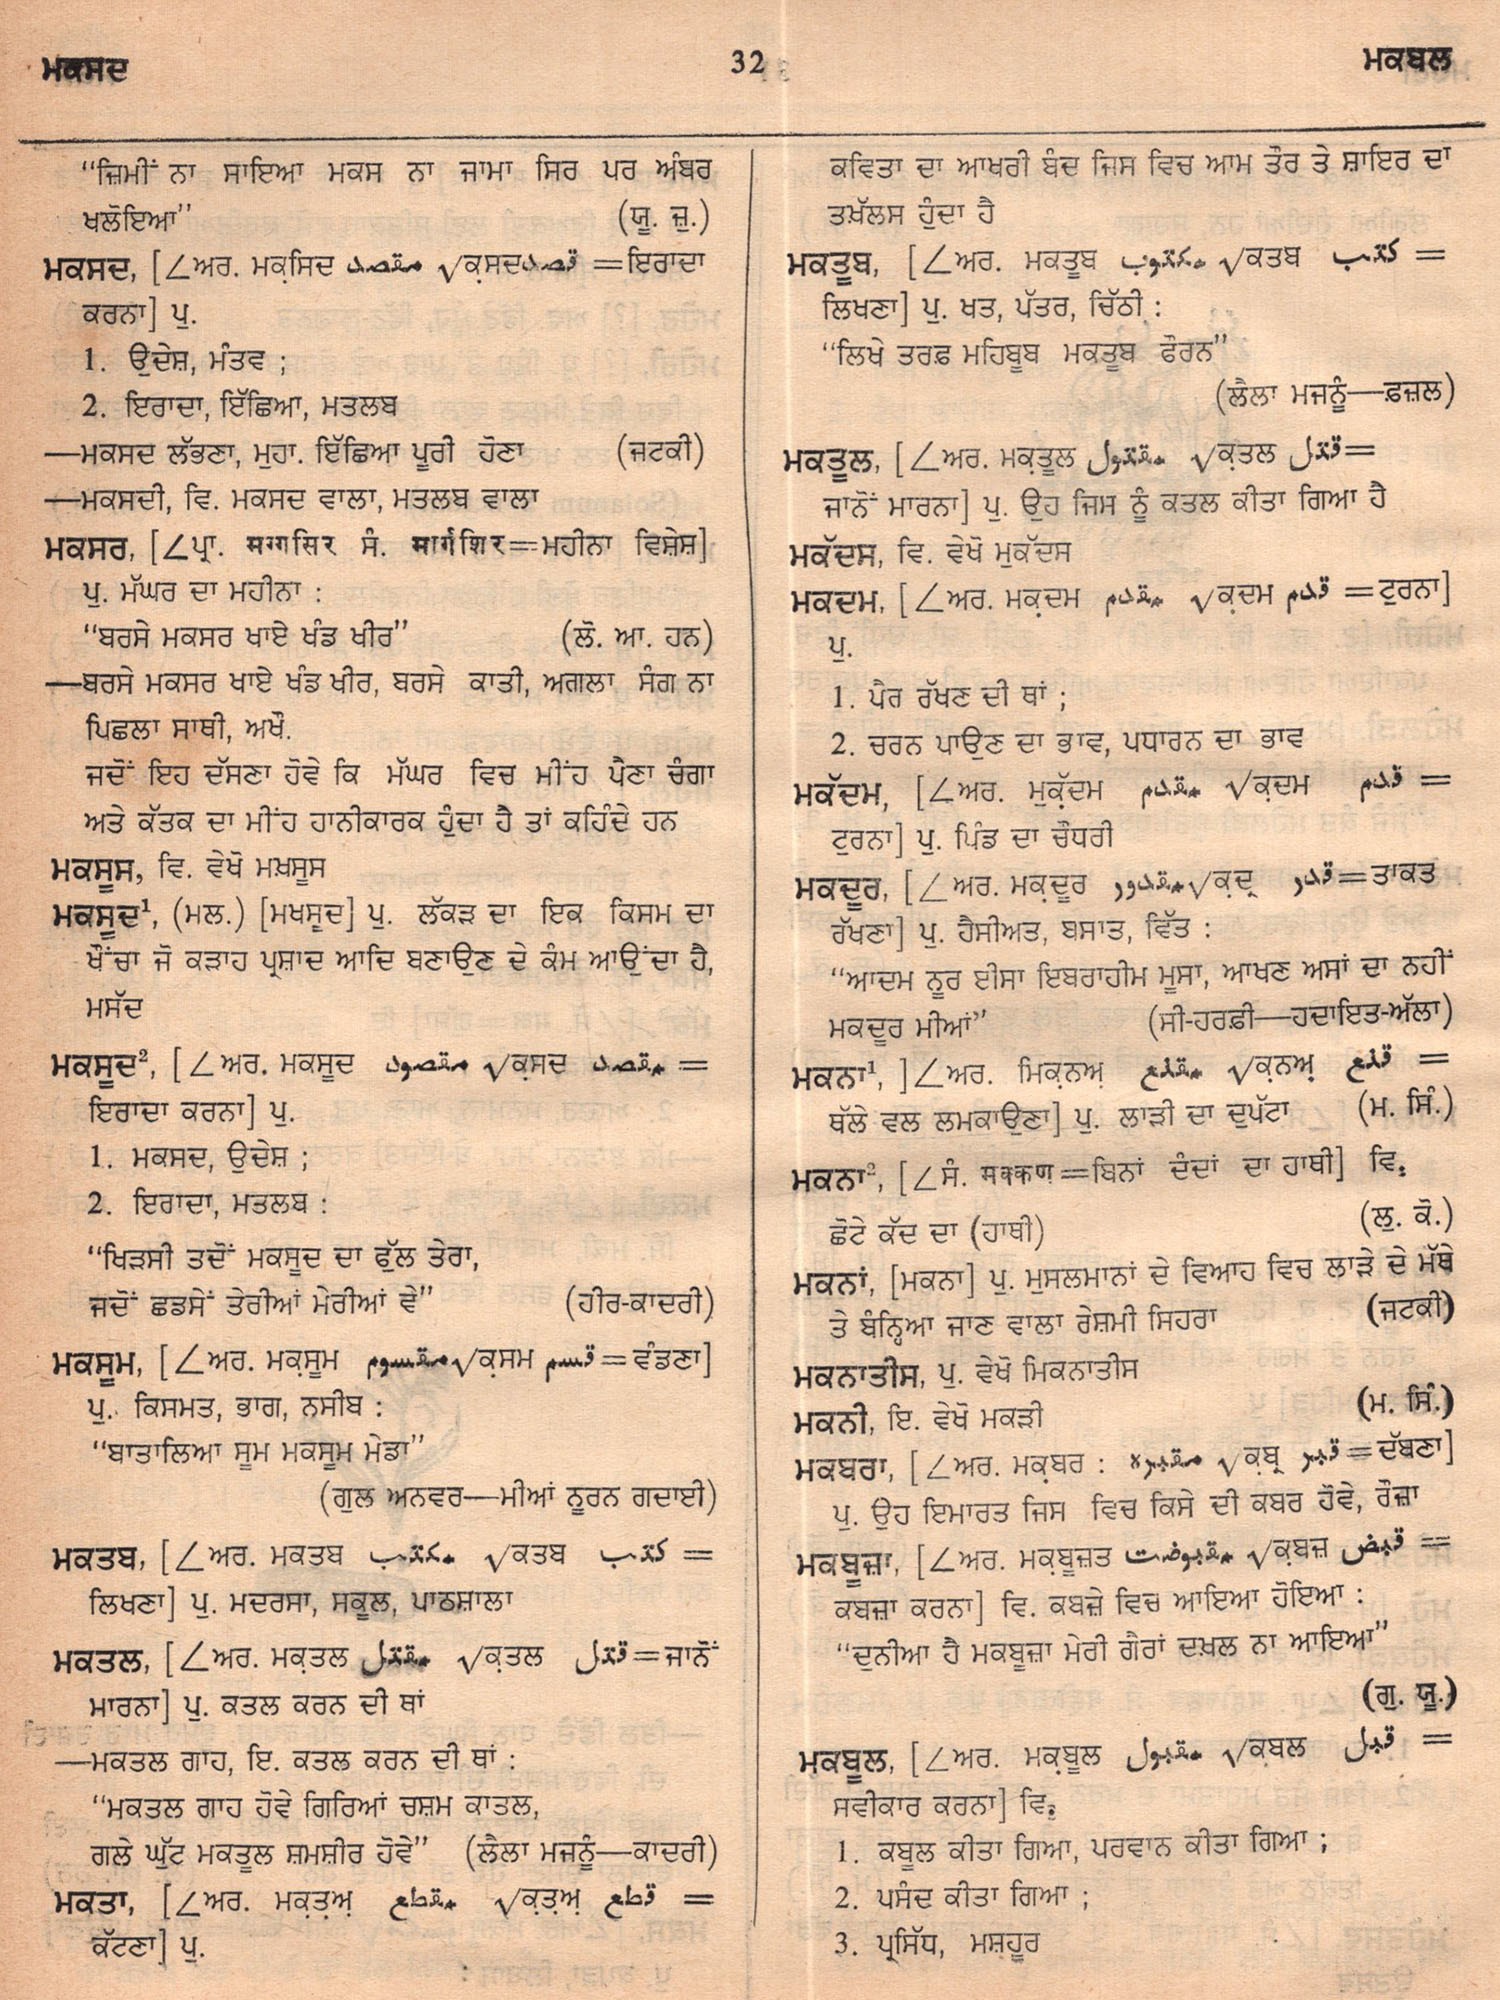 ਮਕਸਦ
32
ਮਕਬਲ
“ਜ਼ਿਮੀਂ ਨਾ ਸਾਇਆ ਮਕਸ ਨਾ ਜਾਮਾ ਸਿਰ ਪਰ ਅੰਬਰ
ਖਲੋਇਆ” (ਯੂ. ਜ਼ੁ.)
ਮਕਸਦ, [∠ਅਰ. ਮਕ਼ਸਿਦ مقصد √ਕ਼ਸਦ قصد =ਇਰਾਦਾ
ਕਰਨਾ] ਪੁ.
1. ਉਦੇਸ਼, ਮੰਤਵ ;
2. ਇਰਾਦਾ, ਇੱਛਿਆ, ਮਤਲਬ
—ਮਕਸਦ ਲੱਭਣਾ, ਮੁਹਾ. ਇੱਛਿਆ ਪੂਰੀ ਹੋਣਾ (ਜਟਕੀ)
—ਮਕਸਦੀ, ਵਿ. ਮਕਸਦ ਵਾਲਾ, ਮਤਲਬ ਵਾਲਾ
ਮਕਸਰ, [∠ਪ੍ਰਾ. मग्गसिर ਸੰ. मार्गशिर=ਮਹੀਨਾ ਵਿਸ਼ੇਸ਼]
ਪੁ. ਮੱਘਰ ਦਾ ਮਹੀਨਾ :
“ਬਰਸੇ ਮਕਸਰ ਖਾਏ ਖੰਡ ਖੀਰ” (ਲੋ. ਆ. ਹਨ)
—ਬਰਸੇ ਮਕਸਰ ਖਾਏ ਖੰਡ ਖੀਰ, ਬਰਸੇ ਕਾਤੀ, ਅਗਲਾ ਸੰਗ ਨਾ
ਪਿਛਲਾ ਸਾਥੀ, ਅਖੌ.
ਜਦੋਂ ਇਹ ਦੱਸਣਾ ਹੋਵੇ ਕਿ ਮੱਘਰ ਵਿਚ ਮੀਂਹ ਪੈਣਾ ਚੰਗਾ
ਅਤੇ ਕੱਤਕ ਦਾ ਮੀਂਹ ਹਾਨੀਕਾਰਕ ਹੁੰਦਾ ਹੈ ਤਾਂ ਕਹਿੰਦੇ ਹਨ
ਮਕਸੂਸ, ਵਿ. ਵੇਖੋ ਮਖ਼ਸੂਸ
ਮਕਸੂਦ¹, (ਮਲ.) [ਮਖਸੂਦ] ਪੁ. ਲੱਕੜ ਦਾ ਇਕ ਕਿਸਮ ਦਾ
ਖੌਂਚਾ ਜੋ ਕੜਾਹ ਪ੍ਰਸ਼ਾਦ ਆਦਿ ਬਣਾਉਣ ਦੇ ਕੰਮ ਆਉਂਦਾ ਹੈ,
ਮਸੱਦ
ਮਕਸੂਦ², [∠ਅਰ. ਮਕਸੂਦ مقصود √ਕ਼ਸਦ مقصد =
ਇਰਾਦਾ ਕਰਨਾ] ਪੁ.
1. ਮਕਸਦ, ਉਦੇਸ਼ ;
2. ਇਰਾਦਾ, ਮਤਲਬ :
“ਖਿੜਸੀ ਤਦੋਂ ਮਕਸੂਦ ਦਾ ਫੁੱਲ ਤੇਰਾ,
ਜਦੋਂ ਛਡਸੇਂ ਤੇਰੀਆਂ ਮੇਰੀਆਂ ਵੇ” (ਹੀਰ-ਕਾਦਰੀ)
ਮਕਸੂਮ, [∠ਅਰ. ਮਕ਼ਸੂਮ مقسوم √ਕ਼ਸਮ قسم =ਵੰਡਣਾ]
ਪੁ. ਕਿਸਮਤ, ਭਾਗ, ਨਸੀਬ :
“ਬਾਤਾਲਿਆ ਸੂਮ ਮਕਸੂਮ ਮੇਡਾ”
(ਗੁਲ ਅਨਵਰ—ਮੀਆਂ ਨੂਰਨ ਗਦਾਈ)
ਮਕਤਬ, [∠ਅਰ. ਮਕਤਬ مكتب √ਕਤਬ كتب =
ਲਿਖਣਾ] ਪੁ. ਮਦਰਸਾ, ਸਕੂਲ, ਪਾਠਸ਼ਾਲਾ
ਮਕਤਲ, [∠ਅਰ. ਮਕ਼ਤਲ مقتل √ਕ਼ਤਲ قتل =ਜਾਨੋਂ
ਮਾਰਨਾ] ਪੁ. ਕਤਲ ਕਰਨ ਦੀ ਥਾਂ
—ਮਕਤਲ ਗਾਹ, ਇ. ਕਤਲ ਕਰਨ ਦੀ ਥਾਂ :
“ਮਕਤਲ ਗਾਹ ਹੋਵੇ ਗਿਰਿਆਂ ਚਸ਼ਮ ਕਾਤਲ,
ਗਲੇ ਘੁੱਟ ਮਕਤੂਲ ਸ਼ਮਸ਼ੀਰ ਹੋਵੇ” (ਲੈਲਾ ਮਜਨੂੰ—ਕਾਦਰੀ)
ਮਕਤਾ, [∠ਅਰ. ਮਕ਼ਤ਼ਅ਼ مقطع √ਕ਼ਤ਼ਅ਼ قطع =
ਕੱਟਣਾ] ਪੁ.
ਕਵਿਤਾ ਦਾ ਆਖਰੀ ਬੰਦ ਜਿਸ ਵਿਚ ਆਮ ਤੌਰ ਤੇ ਸ਼ਾਇਰ ਦਾ
ਤਖ਼ੱਲਸ ਹੁੰਦਾ ਹੈ
ਮਕਤੂਬ, [∠ਅਰ. ਮਕਤੂਬ مكتوب √ਕਤਬ كتب =
ਲਿਖਣਾ] ਪੁ. ਖਤ, ਪੱਤਰ, ਚਿੱਠੀ :
“ਲਿਖੇ ਤਰਫ਼ ਮਹਿਬੂਬ ਮਕਤੂਬ ਫੌਰਨ”
(ਲੈਲਾ ਮਜਨੂੰ—ਫ਼ਜ਼ਲ)
ਮਕਤੂਲ, [∠ਅਰ. ਮਕ਼ਤੂਲ مقتول √ਕ਼ਤਲ قتل =
ਜਾਨੋਂ ਮਾਰਨਾ] ਪੁ. ਉਹ ਜਿਸ ਨੂੰ ਕਤਲ ਕੀਤਾ ਗਿਆ ਹੈ
ਮਕੱਦਸ, ਵਿ. ਵੇਖੋ ਮੁਕੱਦਸ
ਮਕਦਮ, [∠ਅਰ. ਮਕ਼ਦਮ مقدم √ਕ਼ਦਮ قدم =ਟੁਰਨਾ]
ਪੁ.
1. ਪੈਰ ਰੱਖਣ ਦੀ ਥਾਂ ;
2. ਚਰਨ ਪਾਉਣ ਦਾ ਭਾਵ, ਪਧਾਰਨ ਦਾ ਭਾਵ
ਮਕੱਦਮ, [∠ਅਰ. ਮੁਕ਼ੱਦਮ مقدم √ਕ਼ਦਮ قدم =
ਟੁਰਨਾ] ਪੁ. ਪਿੰਡ ਦਾ ਚੌਧਰੀ
ਮਕਦੂਰ, [∠ਅਰ. ਮਕ਼ਦੂਰ مقدور √ਕ਼ਦ੍ਰ قدر =ਤਾਕਤ
ਰੱਖਣਾ] ਪੁ. ਹੈਸੀਅਤ, ਬਸਾਤ, ਵਿੱਤ :
“ਆਦਮ ਨੂਰ ਈਸਾ ਇਬਰਾਹੀਮ ਮੂਸਾ, ਆਖਣ ਅਸਾਂ ਦਾ ਨਹੀਂ
ਮਕਦੂਰ ਮੀਆਂ” (ਸੀ-ਹਰਫ਼ੀ—ਹਦਾਇਤ-ਅੱਲਾ)
ਮਕਨਾ¹, ]∠ਅਰ. ਮਿਕ਼ਨਅ਼ مقنع √ਕ਼ਨਅ਼ قنع =
ਥੱਲੇ ਵਲ ਲਮਕਾਉਣਾ] ਪੁ. ਲਾੜੀ ਦਾ ਦੁਪੱਟਾ (ਮ. ਸਿੰ.)
ਮਕਨਾ², [∠ਸੰ. मक्कण=ਬਿਨਾਂ ਦੰਦਾਂ ਦਾ ਹਾਥੀ] ਵਿ.
ਛੋਟੇ ਕੱਦ ਦਾ (ਹਾਥੀ) (ਲੁ. ਕੋ.)
ਮਕਨਾਂ, [ਮਕਨਾ] ਪੁ. ਮੁਸਲਮਾਨਾਂ ਦੇ ਵਿਆਹ ਵਿਚ ਲਾੜੇ ਦੇ ਮੱਥੇ
ਤੇ ਬੰਨ੍ਹਿਆ ਜਾਣ ਵਾਲਾ ਰੇਸ਼ਮੀ ਸਿਹਰਾ (ਜਟਕੀ)
ਮਕਨਾਤੀਸ, ਪੁ. ਵੇਖੋ ਮਿਕਨਾਤੀਸ
ਮਕਨੀ, ਇ. ਵੇਖੋ ਮਕੜੀ (ਮ. ਸਿੰ.)
ਮਕਬਰਾ, [∠ਅਰ. ਮਕ਼ਬਰ : مقبره √ਕ਼ਬ੍ਰ قبر =ਦੱਬਣਾ]
ਪੁ. ਉਹ ਇਮਾਰਤ ਜਿਸ ਵਿਚ ਕਿਸੇ ਦੀ ਕਬਰ ਹੋਵੇ, ਰੌਜ਼ਾ
ਮਕਬੂਜ਼ਾ, [∠ਅਰ. ਮਕ਼ਬੂਜ਼ਤ مقبوضت √ਕ਼ਬਜ਼ قبض =
ਕਬਜ਼ਾ ਕਰਨਾ] ਵਿ. ਕਬਜ਼ੇ ਵਿਚ ਆਇਆ ਹੋਇਆ :
“ਦੁਨੀਆ ਹੈ ਮਕਬੂਜ਼ਾ ਮੇਰੀ ਗੈਰਾਂ ਦਖ਼ਲ ਨਾ ਆਇਆ”
(ਗੁ. ਯੂ.)
ਮਕਬੂਲ, [∠ਅਰ. ਮਕ਼ਬੂਲ مقبول √ਕ਼ਬਲ قبل =
ਸਵੀਕਾਰ ਕਰਨਾ] ਵਿ.
1. ਕਬੂਲ ਕੀਤਾ ਗਿਆ, ਪਰਵਾਨ ਕੀਤਾ ਗਿਆ ;
2. ਪਸੰਦ ਕੀਤਾ ਗਿਆ ;
3. ਪ੍ਰਸਿੱਧ, ਮਸ਼ਹੂਰ